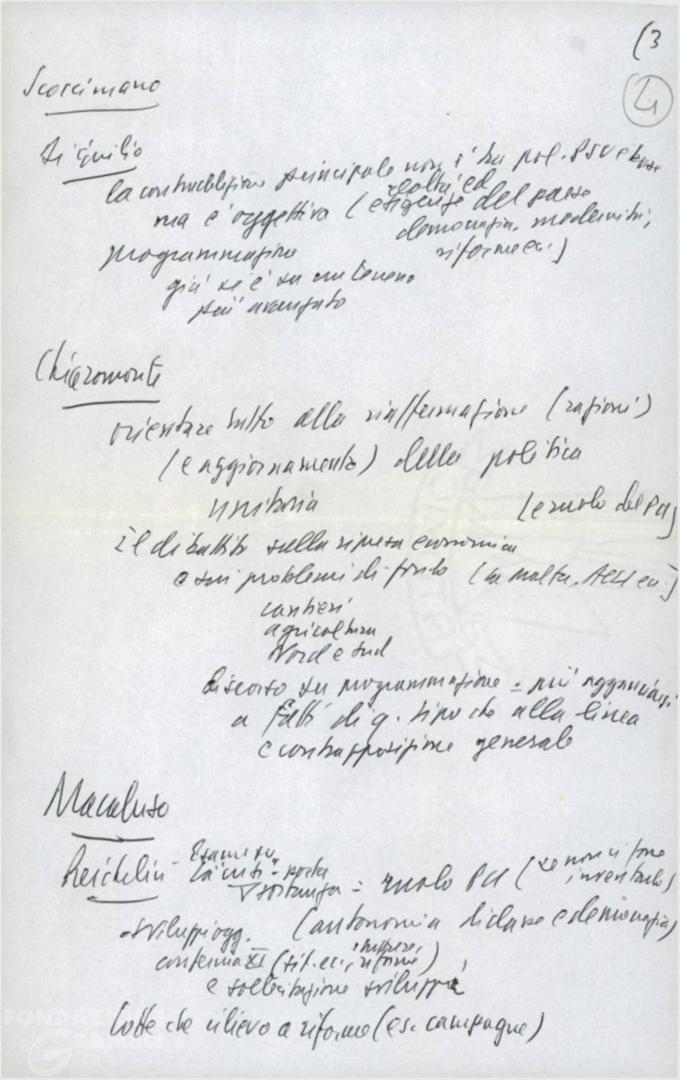 (3
21
Scoccimarro
Di Giulio
la contraddizione principale non è tra pol. PSU e base
ma è oggettiva (esigenze del paese
realtà ed
democrazia, modernità,
riforme ecc.)
programmazione
già se è su un terreno
più avanzato
Chiaromonte
orientare tutto alla riaffermazione (ragioni)
(e aggiornamento) della politica
unitaria (e ruolo del PCI)
il dibattito sulla ripresa economica
e sui problemi di fondo (la Malfa, ACLI ecc.)
cantieri
agricoltura
Nord e Sud
discorso su programmazione = più agganciarsi
a fatti di q. tipo che alla linea
e contrapposizione generale
Macaluso
Reichlin - Esame su
"unità" - sostanza = ruolo PCI (se non ci fosse
inventarlo)
- sviluppi ogg. (autonomia di classe e democrazia)
conferma XI (sit. ec., riforme)
e sollecitazione sviluppi
lotte che rilievo a riforme (es. campagne)
FONDAZIONE
GRAMSCI